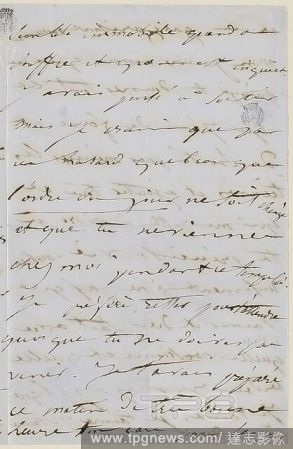 semble immobile quand on
souffre et qu'on est inquiet
j'avais pensé à sortir
mais je crains que par
un hasard quelconque
l'ordre du jour ne soit changé
et que tu revienne
chez moi pendant ce temps là.
Je préfère rester pour t'attendre
quoique tu ne doives pas
venir. Je t'avais préparé
ce matin de très bonne
heure ton eau pour les
TPG
www.tpgnews.com / 達志影像